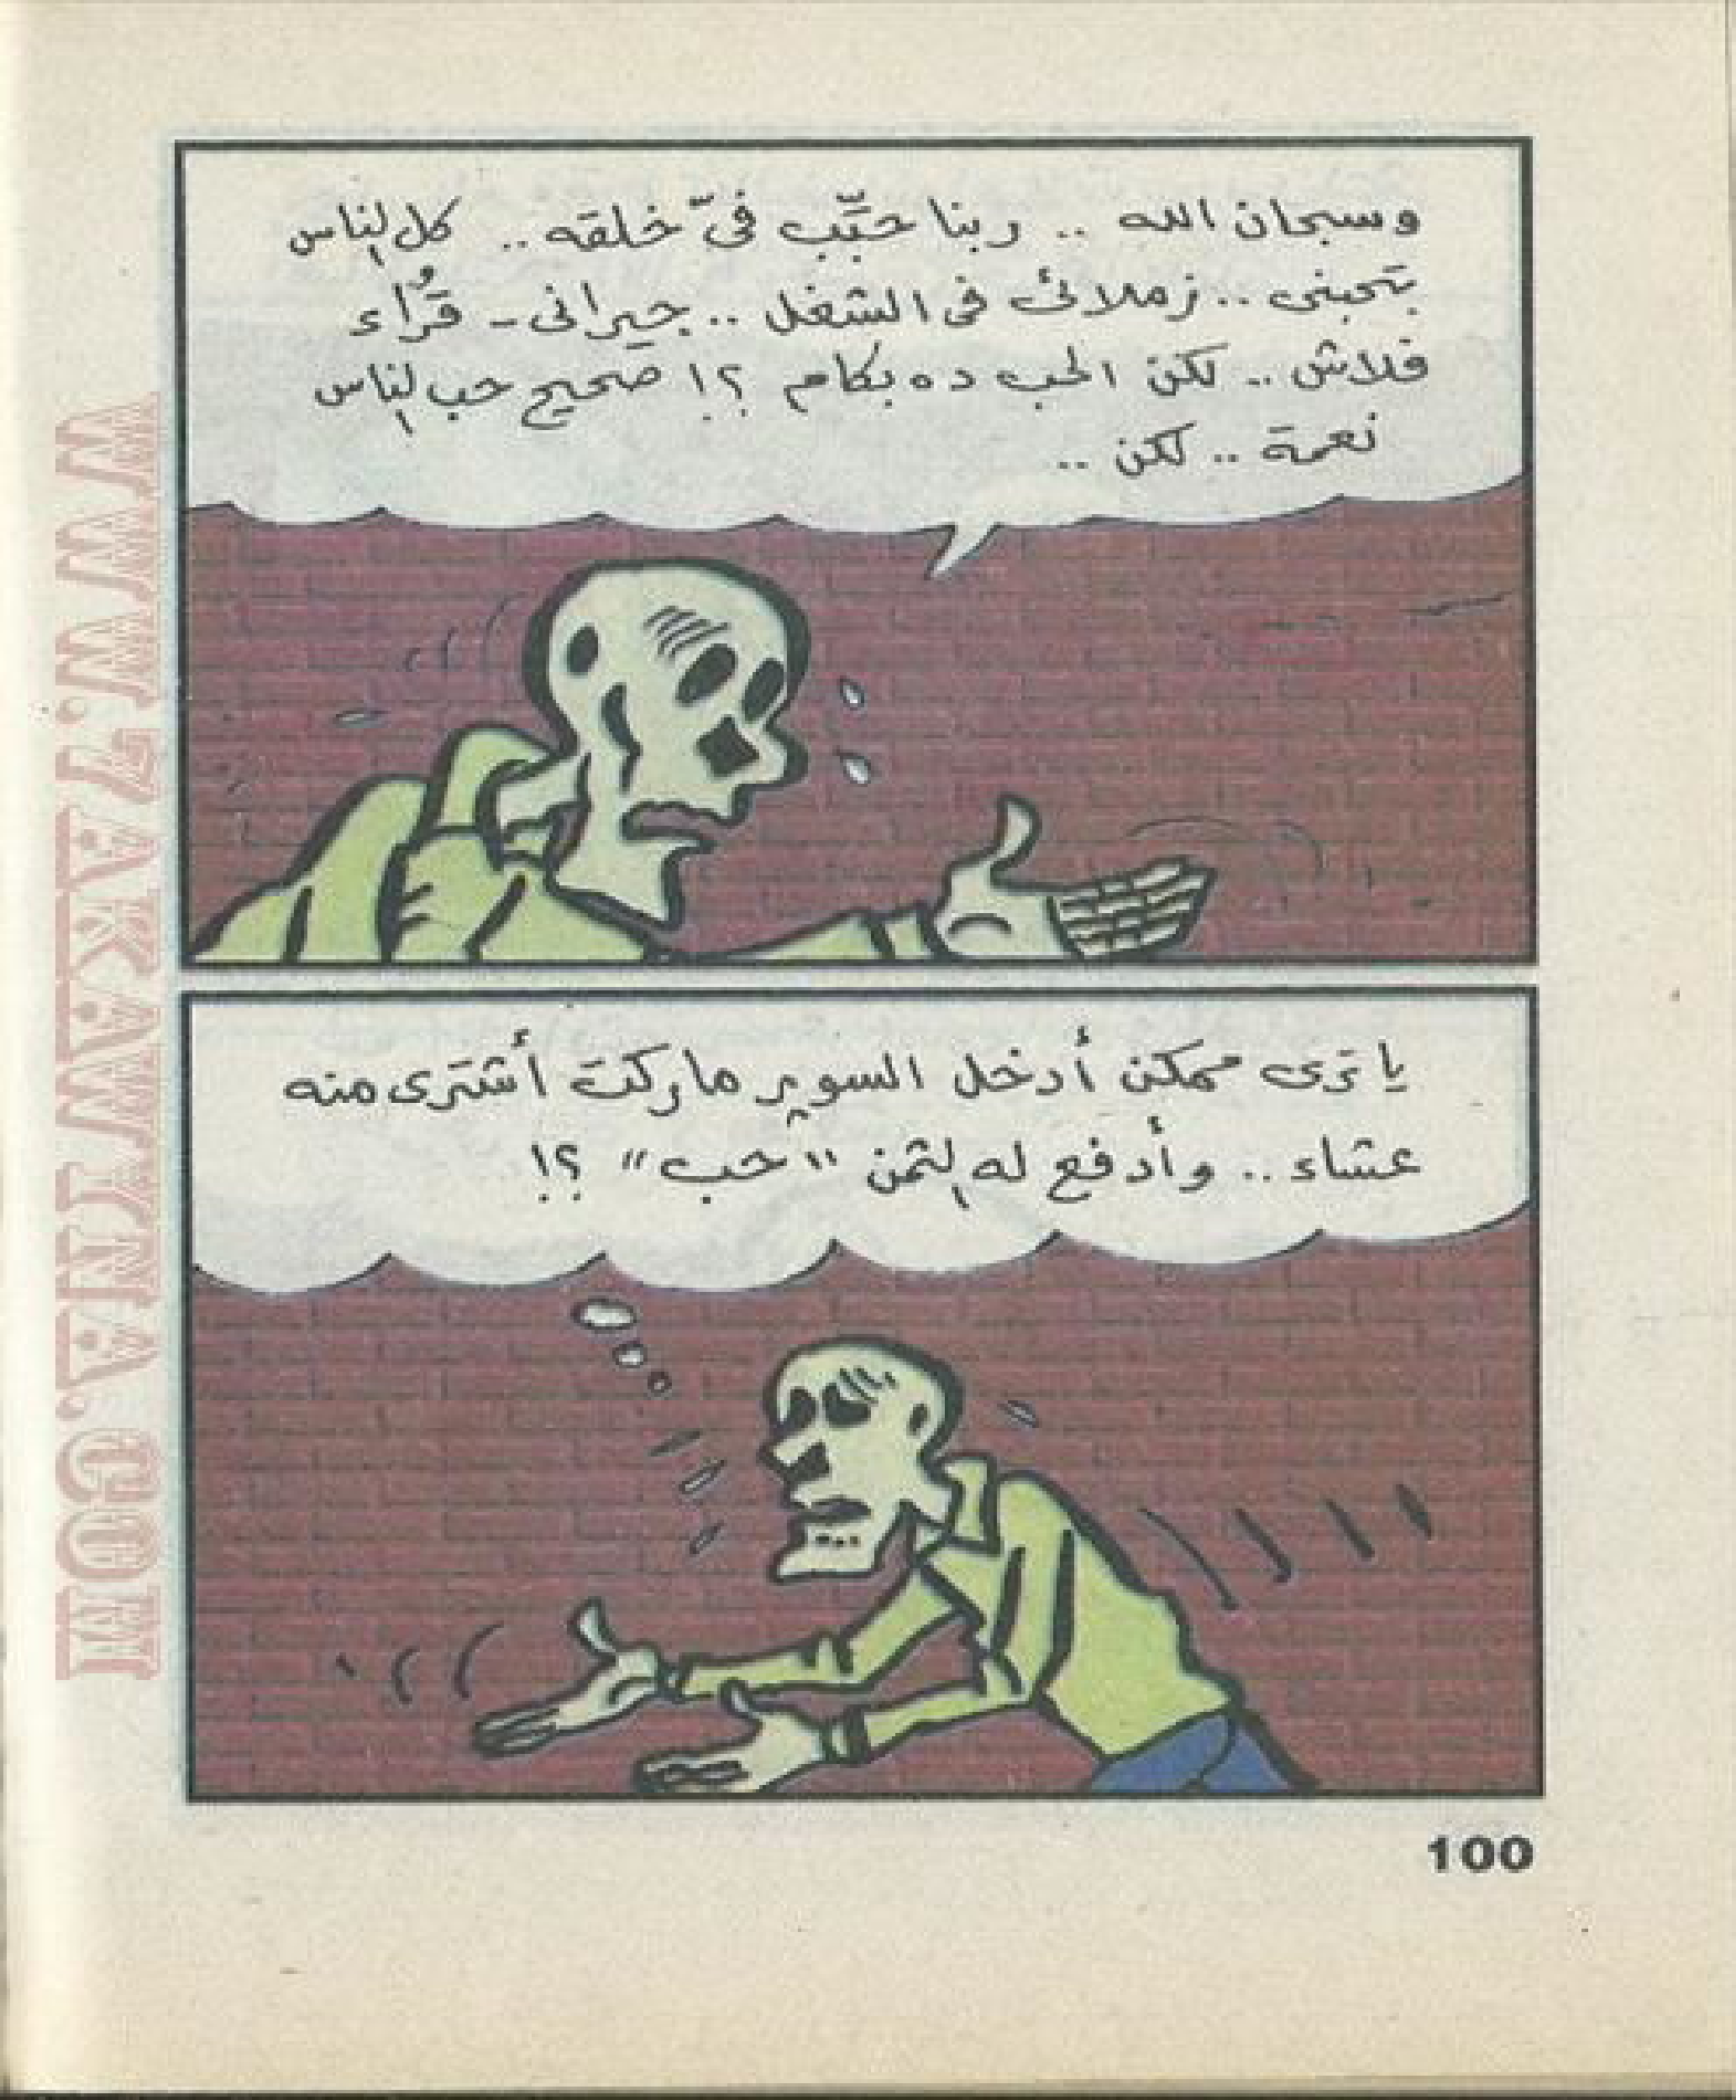 وسبحان الله .. ربنا حبِّب فىّ خلقه .. كل الناس
بتحبنى .. زملائى فى الشغل .. جيرانى - قُرَّاء
فلاش .. لكن الحب ده بكام ؟! صحيح حب الناس
نعمة .. لكن ..
يا ترى ممكن أدخل السوبر ماركت أشترى منه
عشاء .. وأدفع له الثمن "حب" ؟!
100
WWW.7AKAWINA.COM